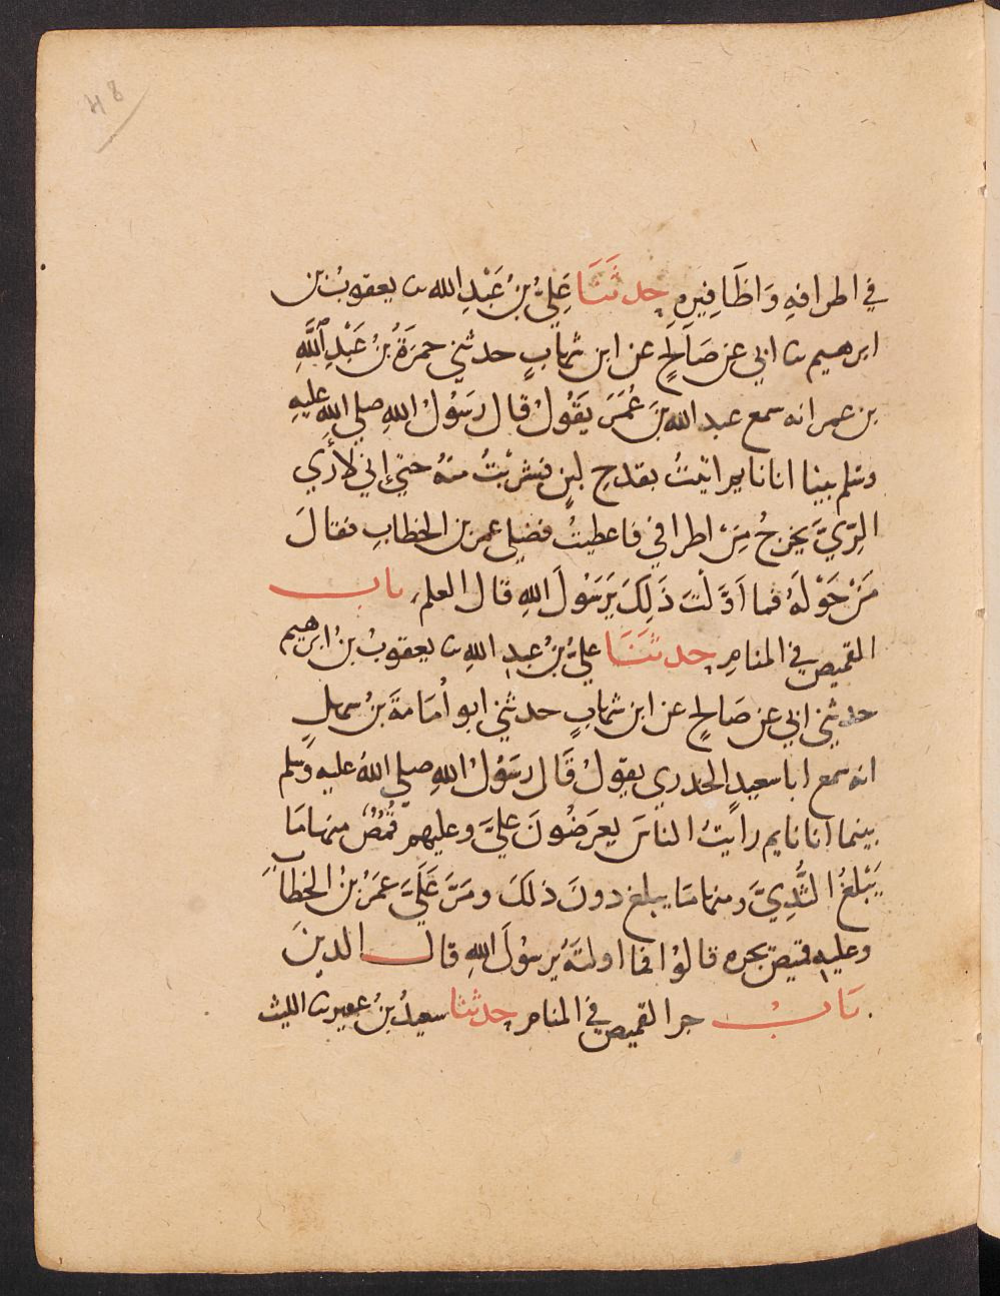 48
في اطرافهِ وَاظَافِيرِهِ حدثَنَا عَلِيُّ بنُ عَبْدِ الله ثنا يعقوبُ بن
ابرهيم ثنا ابي عن صَالحٍ عن ابن شهابٍ حدثني حمزةُ بنُ عَبْدِ اللَّهِ
بن عمر انه سمع عبد الله بنَ عُمَرَ يَقُولُ قال رسَوُلُ اللهِ صلي الله عليهِ
وسَلم بينا انا نايم اتيتُ بقدحِ لبنٍ فشربْتُ منهُ حتي إني لأرَي
الرِّيَّ يَخرجُ مِنْ اطرافي فاعطيتُ فضلي عمر بن الخطابِ فقالَ
مَنْ حَوْلَهُ فما اَوَّلْتَ ذَلِكَ يَرَسُوْلَ اللهِ قال العلم باب
القميص في المنامِ حدثَنَا عليُّ بنُ عبدِ اللهِ ثنا يعقوبُ بنُ ابرهيم
حدثني ابي عن صَالحٍ عن ابن شهابٍ حدثني ابو أمَامَةَ بنُ سهلٍ
انه سمع ابا سعيدٍ الخدري يقولُ قَال رسَوُلُ اللهِ صلي اللهُ عليه وسَلم
بينما انا نايم رايتُ الناسَ يعرَضُونَ عليَّ وعليهم قُمُصٌ منها مَا
يَبْلغُ الثُّدِيَّ ومنها مَا يبلغ دونَ ذلكَ ومَرَّ عَلَيَّ عمَرُ بنُ الخطاب
وعليهِ قميصٌ يجره قالوْا فما اولتهُ يرسُوْلَ اللهِ قال الدينَ
بَابُ جر القميص في المنام حدثنا سعيدُ بنُ عفير ثنا الليث